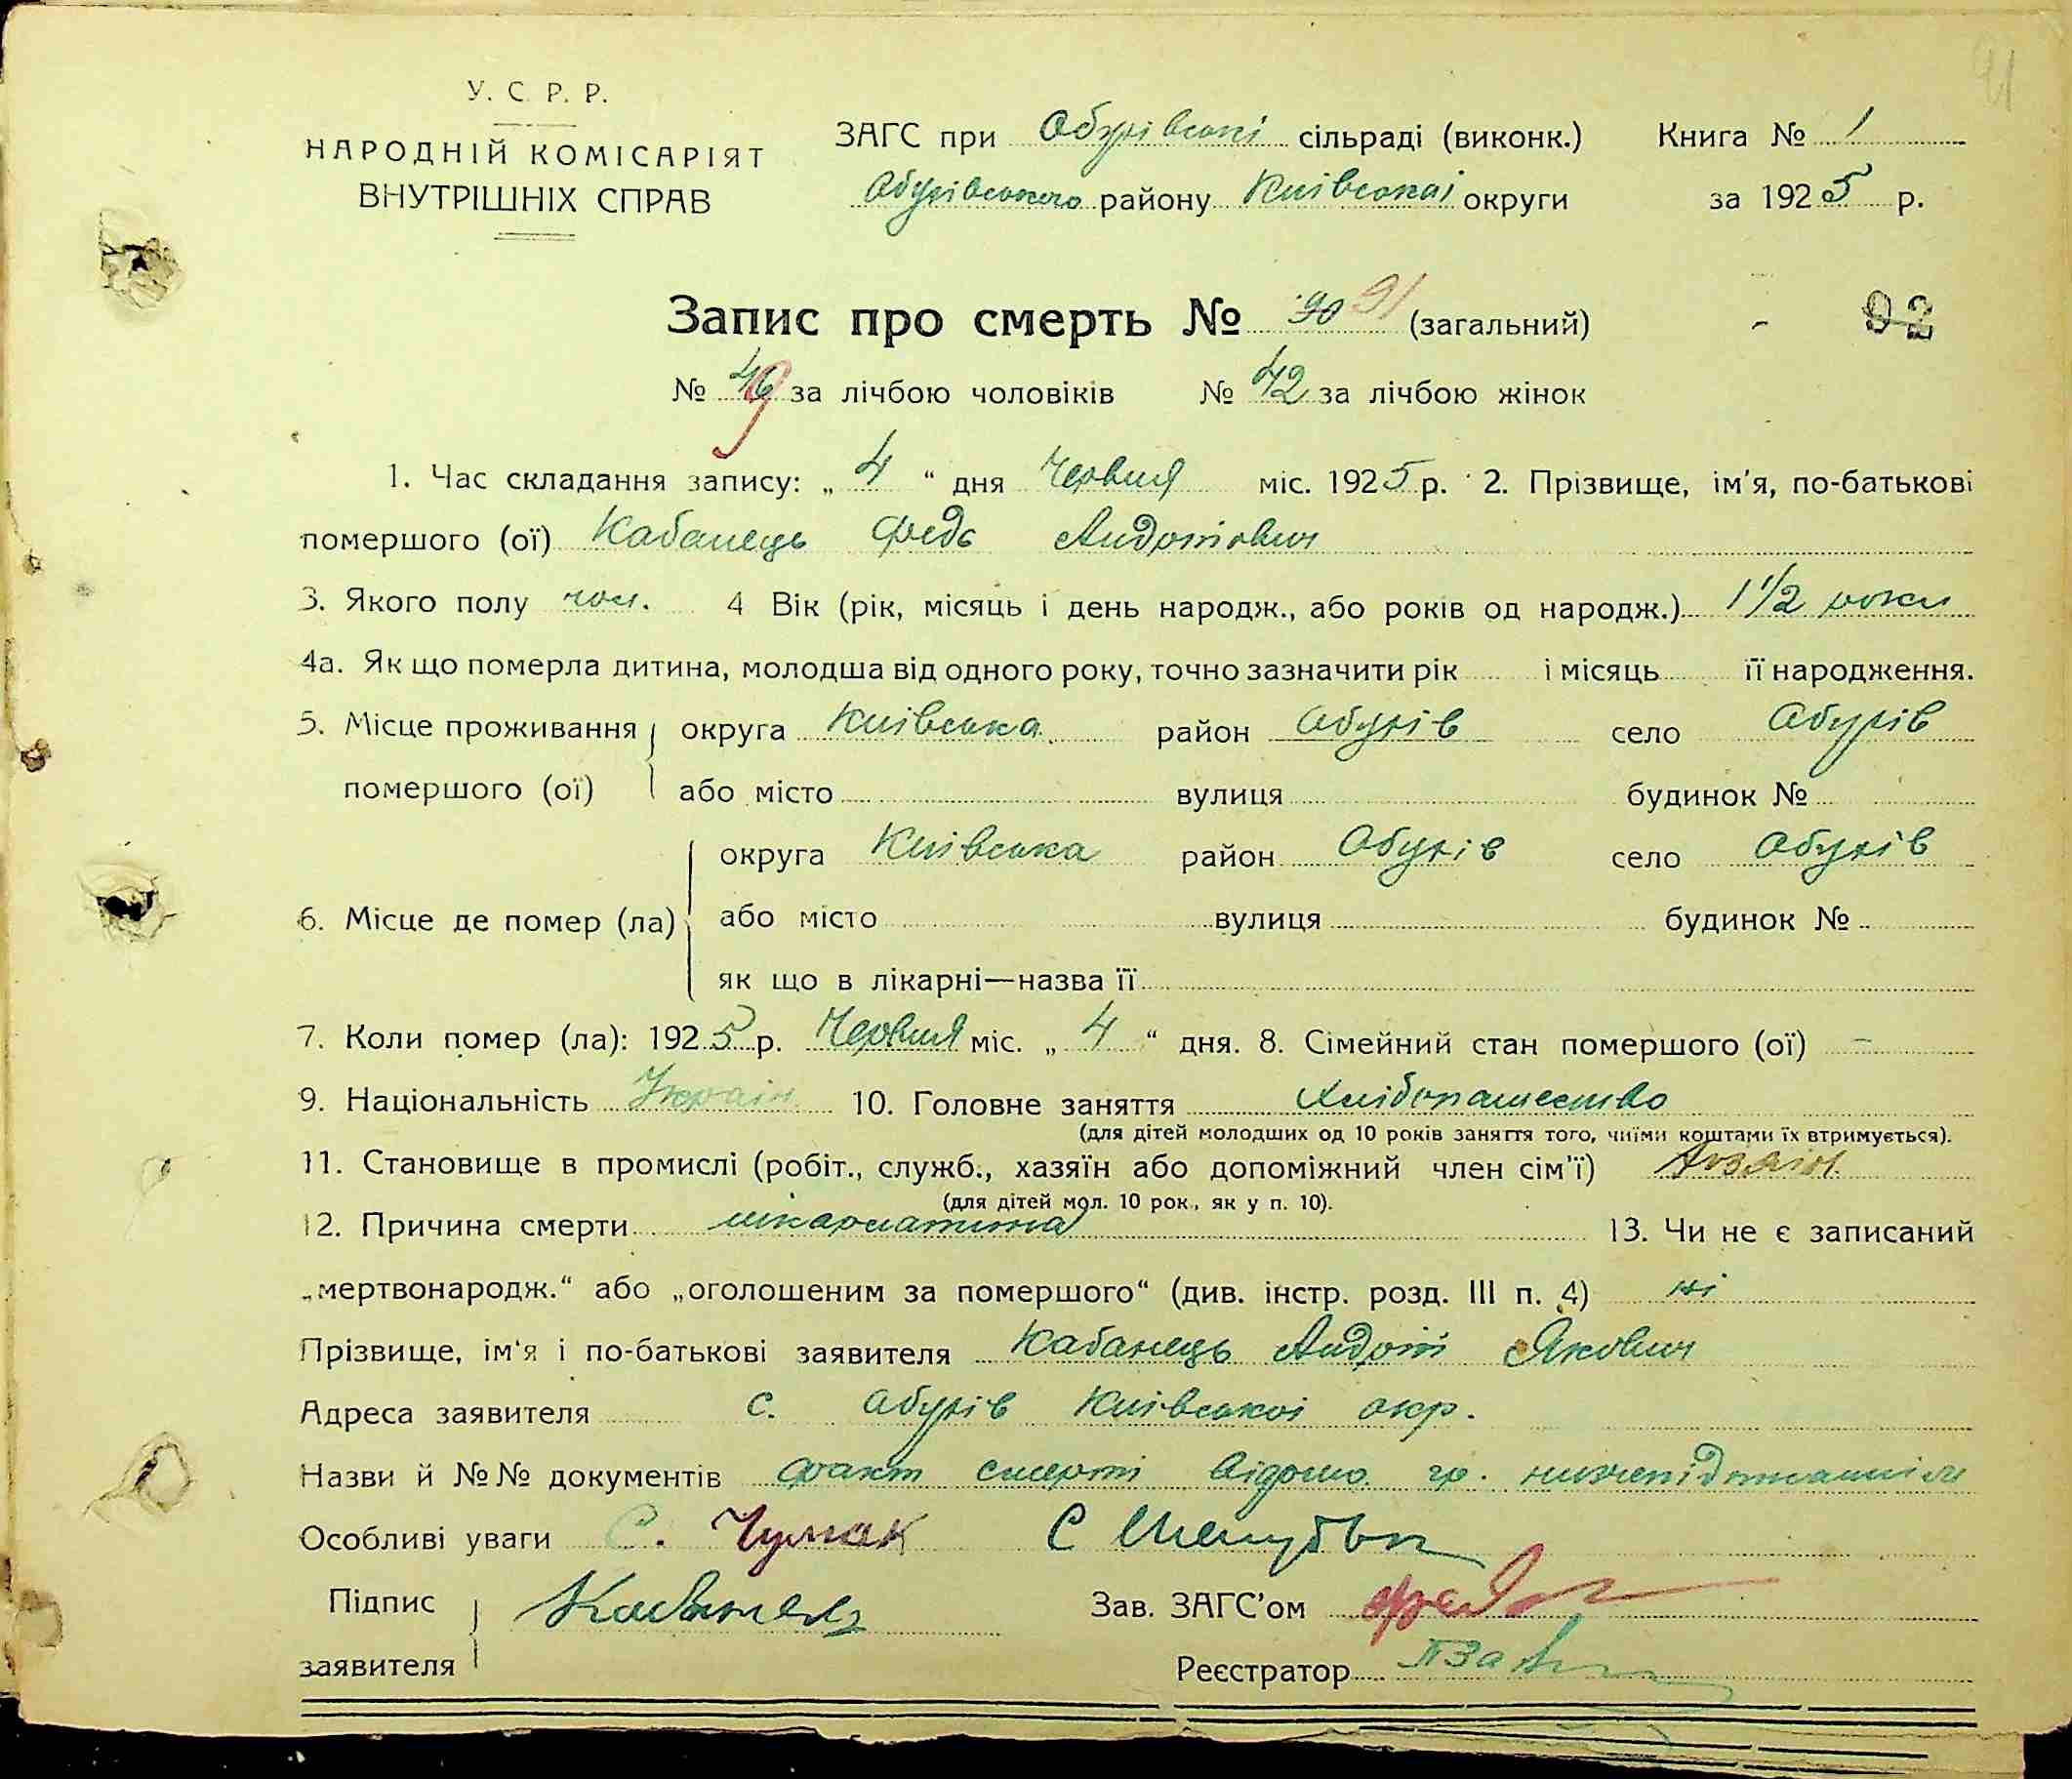 91
У. С. Р. Р.
НАРОДНІЙ КОМІСАРІЯТ
ВНУТРІШНІХ СПРАВ
ЗАГС при Обухівські сільраді (виконк.) Книга № 1
Обухівського району Київської округи за 1925 р.
Запис про смерть № 90 91 (загальний) 92
№ 49 за лічбою чоловіків № 42 за лічбою жінок
1. Час складання запису: „ 4 “ дня Червня міс. 1925 р. 2. Прізвище, ім'я, по-батькові
помершого (ої) Кабанець Федь Андріївич
3. Якого полу чол. 4 Вік (рік, місяць і день народж., або років од народж.) 1 1/2 роки
4а. Як що померла дитина, молодша від одного року, точно зазначити рік і місяць її народження.
5. Місце проживання округа Київська район Обухів село Обухів
помершого (ої) або місто вулиця будинок №
округа Київська район Обухів село Обухів
6. Місце де помер (ла) або місто вулиця будинок №
як що в лікарні—назва її
7. Коли помер (ла): 1925 р. Червня міс. „ 4 “ дня. 8. Сімейний стан помершого (ої) -
9. Національність Україн. 10. Головне заняття Хлібопашество
(для дітей молодших од 10 років заняття того, чиїми коштами їх втримується).
11. Становище в промислі (робіт., служб., хазяїн або допоміжний член сім'ї) Хазяїн
(для дітей мол. 10 рок., як у п. 10).
12. Причина смерти шкарлатина 13. Чи не є записаний
„мертвонародж.“ або „оголошеним за помершого“ (див. інстр. розд. III п. 4) ні
Прізвище, ім'я і по-батькові заявителя Кабанець Андрій Якович
Адреса заявителя с. Обухів Київської окр.
Назви й №№ документів факт смерті відомо гр. нижепідписаннім
Особливі уваги С. Чумак С
Підпис Кабанець Зав. ЗАГС'ом
заявителя Реєстратор